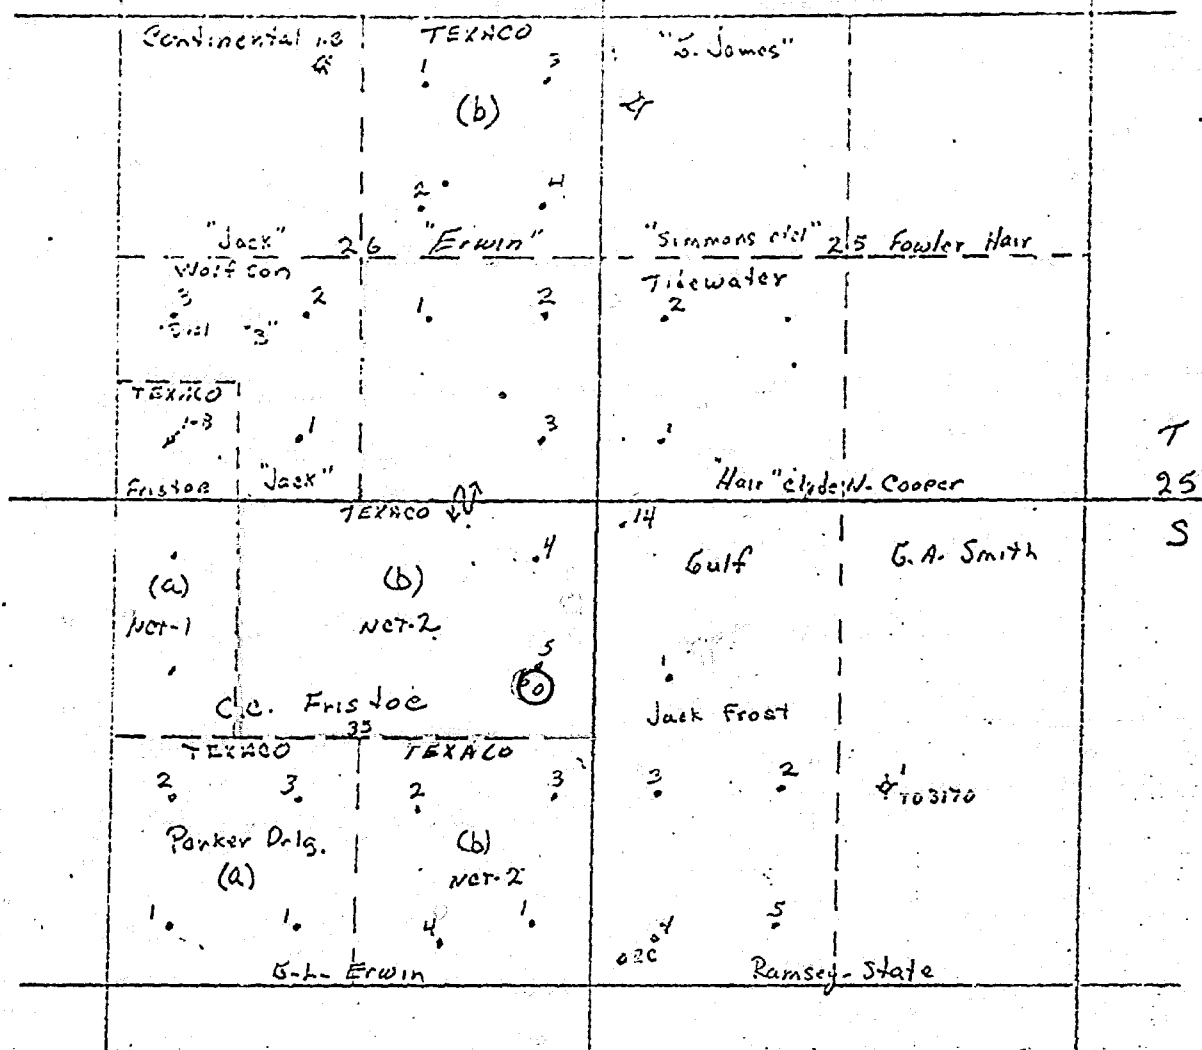 Continental 1-B
TEXACO
"G. James"
1
3
(b)
2
4
"Jack" 26 "Erwin"
"Simmons etal" 25 Fowler Hair
Wolfson
Tidewater
3
2
1
2
2
TEXACO
1-B
1
3
1
Fristoe
"Jack"
"Hair" Clyde N. Cooper
T
25
S
TEXACO
4
14
(a)
(b)
Gulf
G. A. Smith
NCT-1
NCT-2
5
6
1
C.C. Fristoe
Jack Frost
35
TEXACO
TEXACO
2
3
2
3
3
2
1
TD3170
Parker Drlg.
(a)
(b)
NCT-2
1
1
4
1
4
5
2C
G-L- Erwin
Ramsey-State